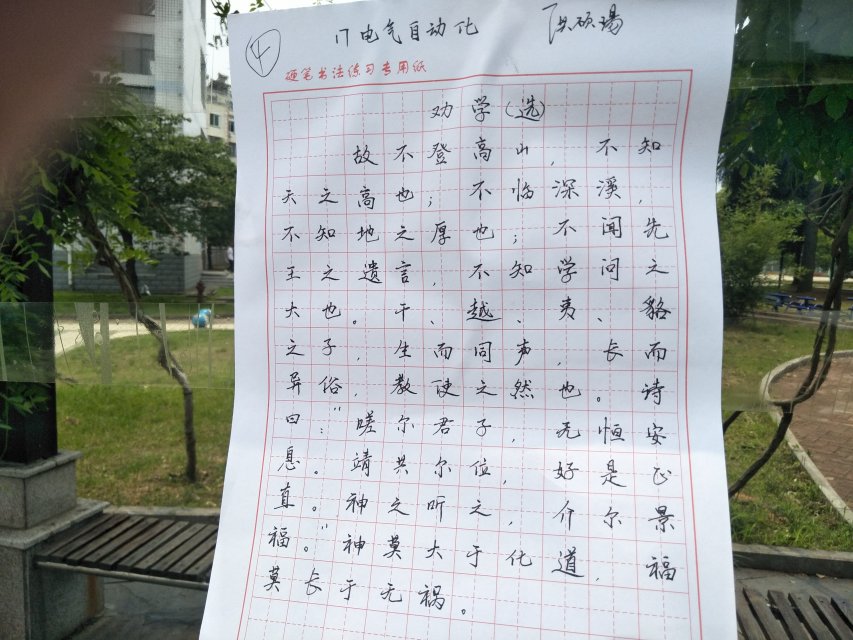 ④ 17电气自动化 洪硕场
硬笔书法练习专用纸
劝学(选)
故不登高山，不知
天之高也；不临深溪，
不知地之厚也；不闻先
王之遗言，不知学问之
大也。干、越、夷、貉
之子，生而同声，长而
异俗，教使之然也。诗
曰："嗟尔君子，无恒安
息。靖共尔位，好是正
直。神之听之，介尔景
福。"神莫大于化道，福
莫长于无祸。